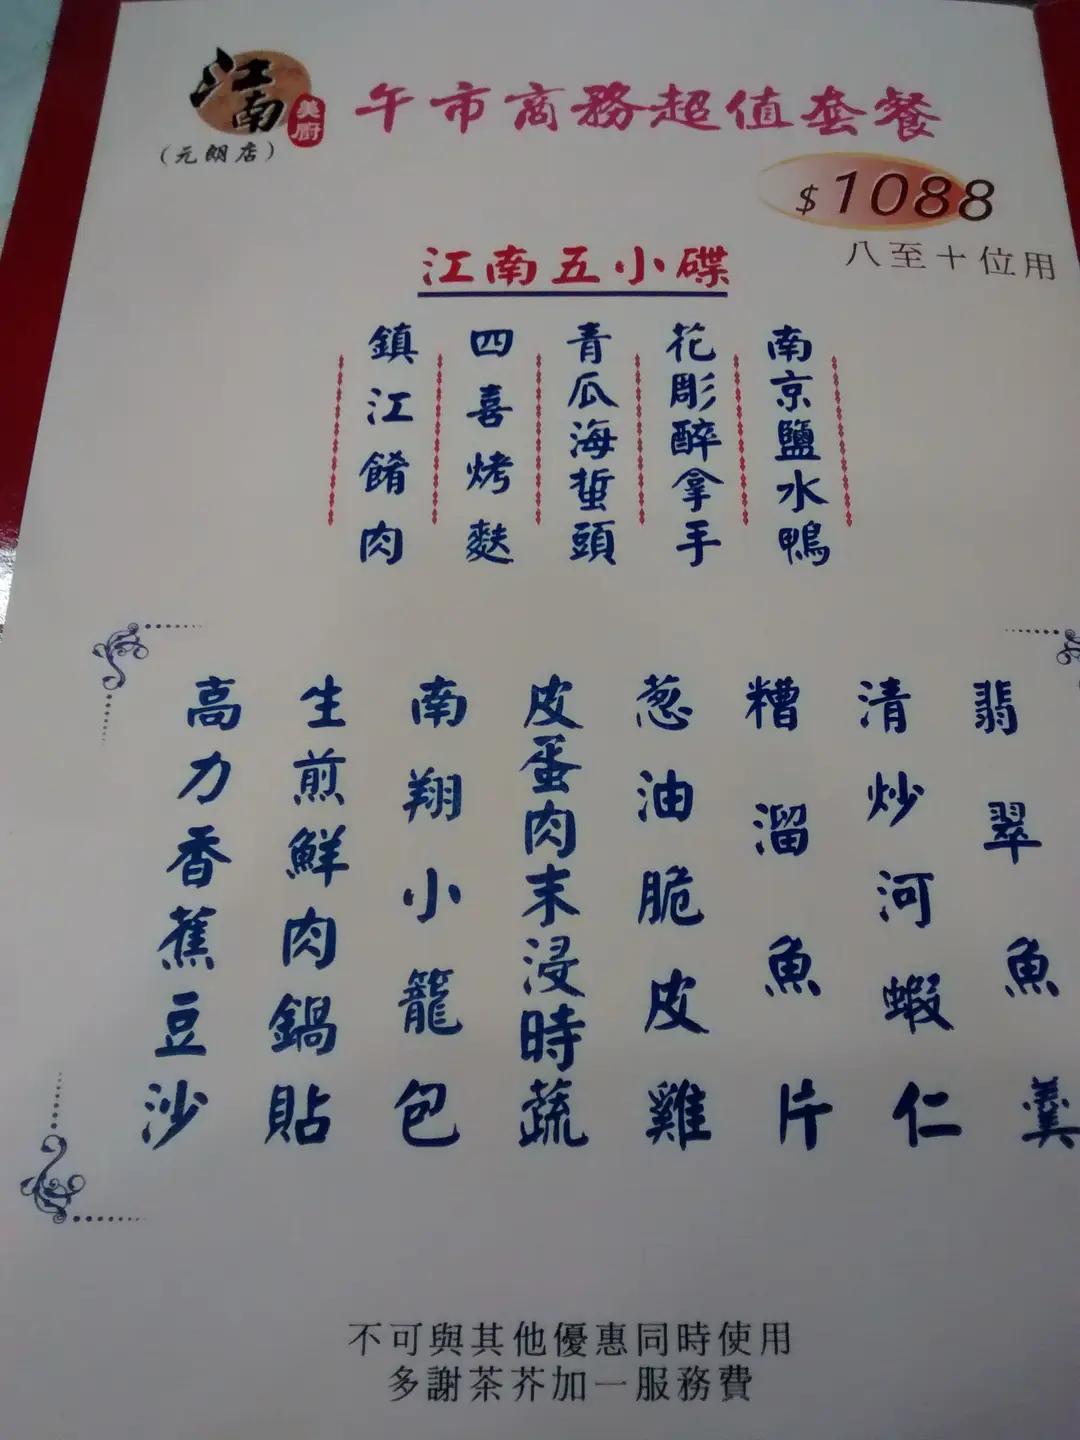 江南
美廚
(元朗店)
午市商務超值套餐
$1088
八至十位用
江南五小碟
南京鹽水鴨
花彫醉拿手
青瓜海蜇頭
四喜烤麩
鎮江餚肉
翡翠魚羹
清炒河蝦仁
糟溜魚片
葱油脆皮雞
皮蛋肉末浸時蔬
南翔小籠包
生煎鮮肉鍋貼
高力香蕉豆沙
不可與其他優惠同時使用
多謝茶芥加一服務費